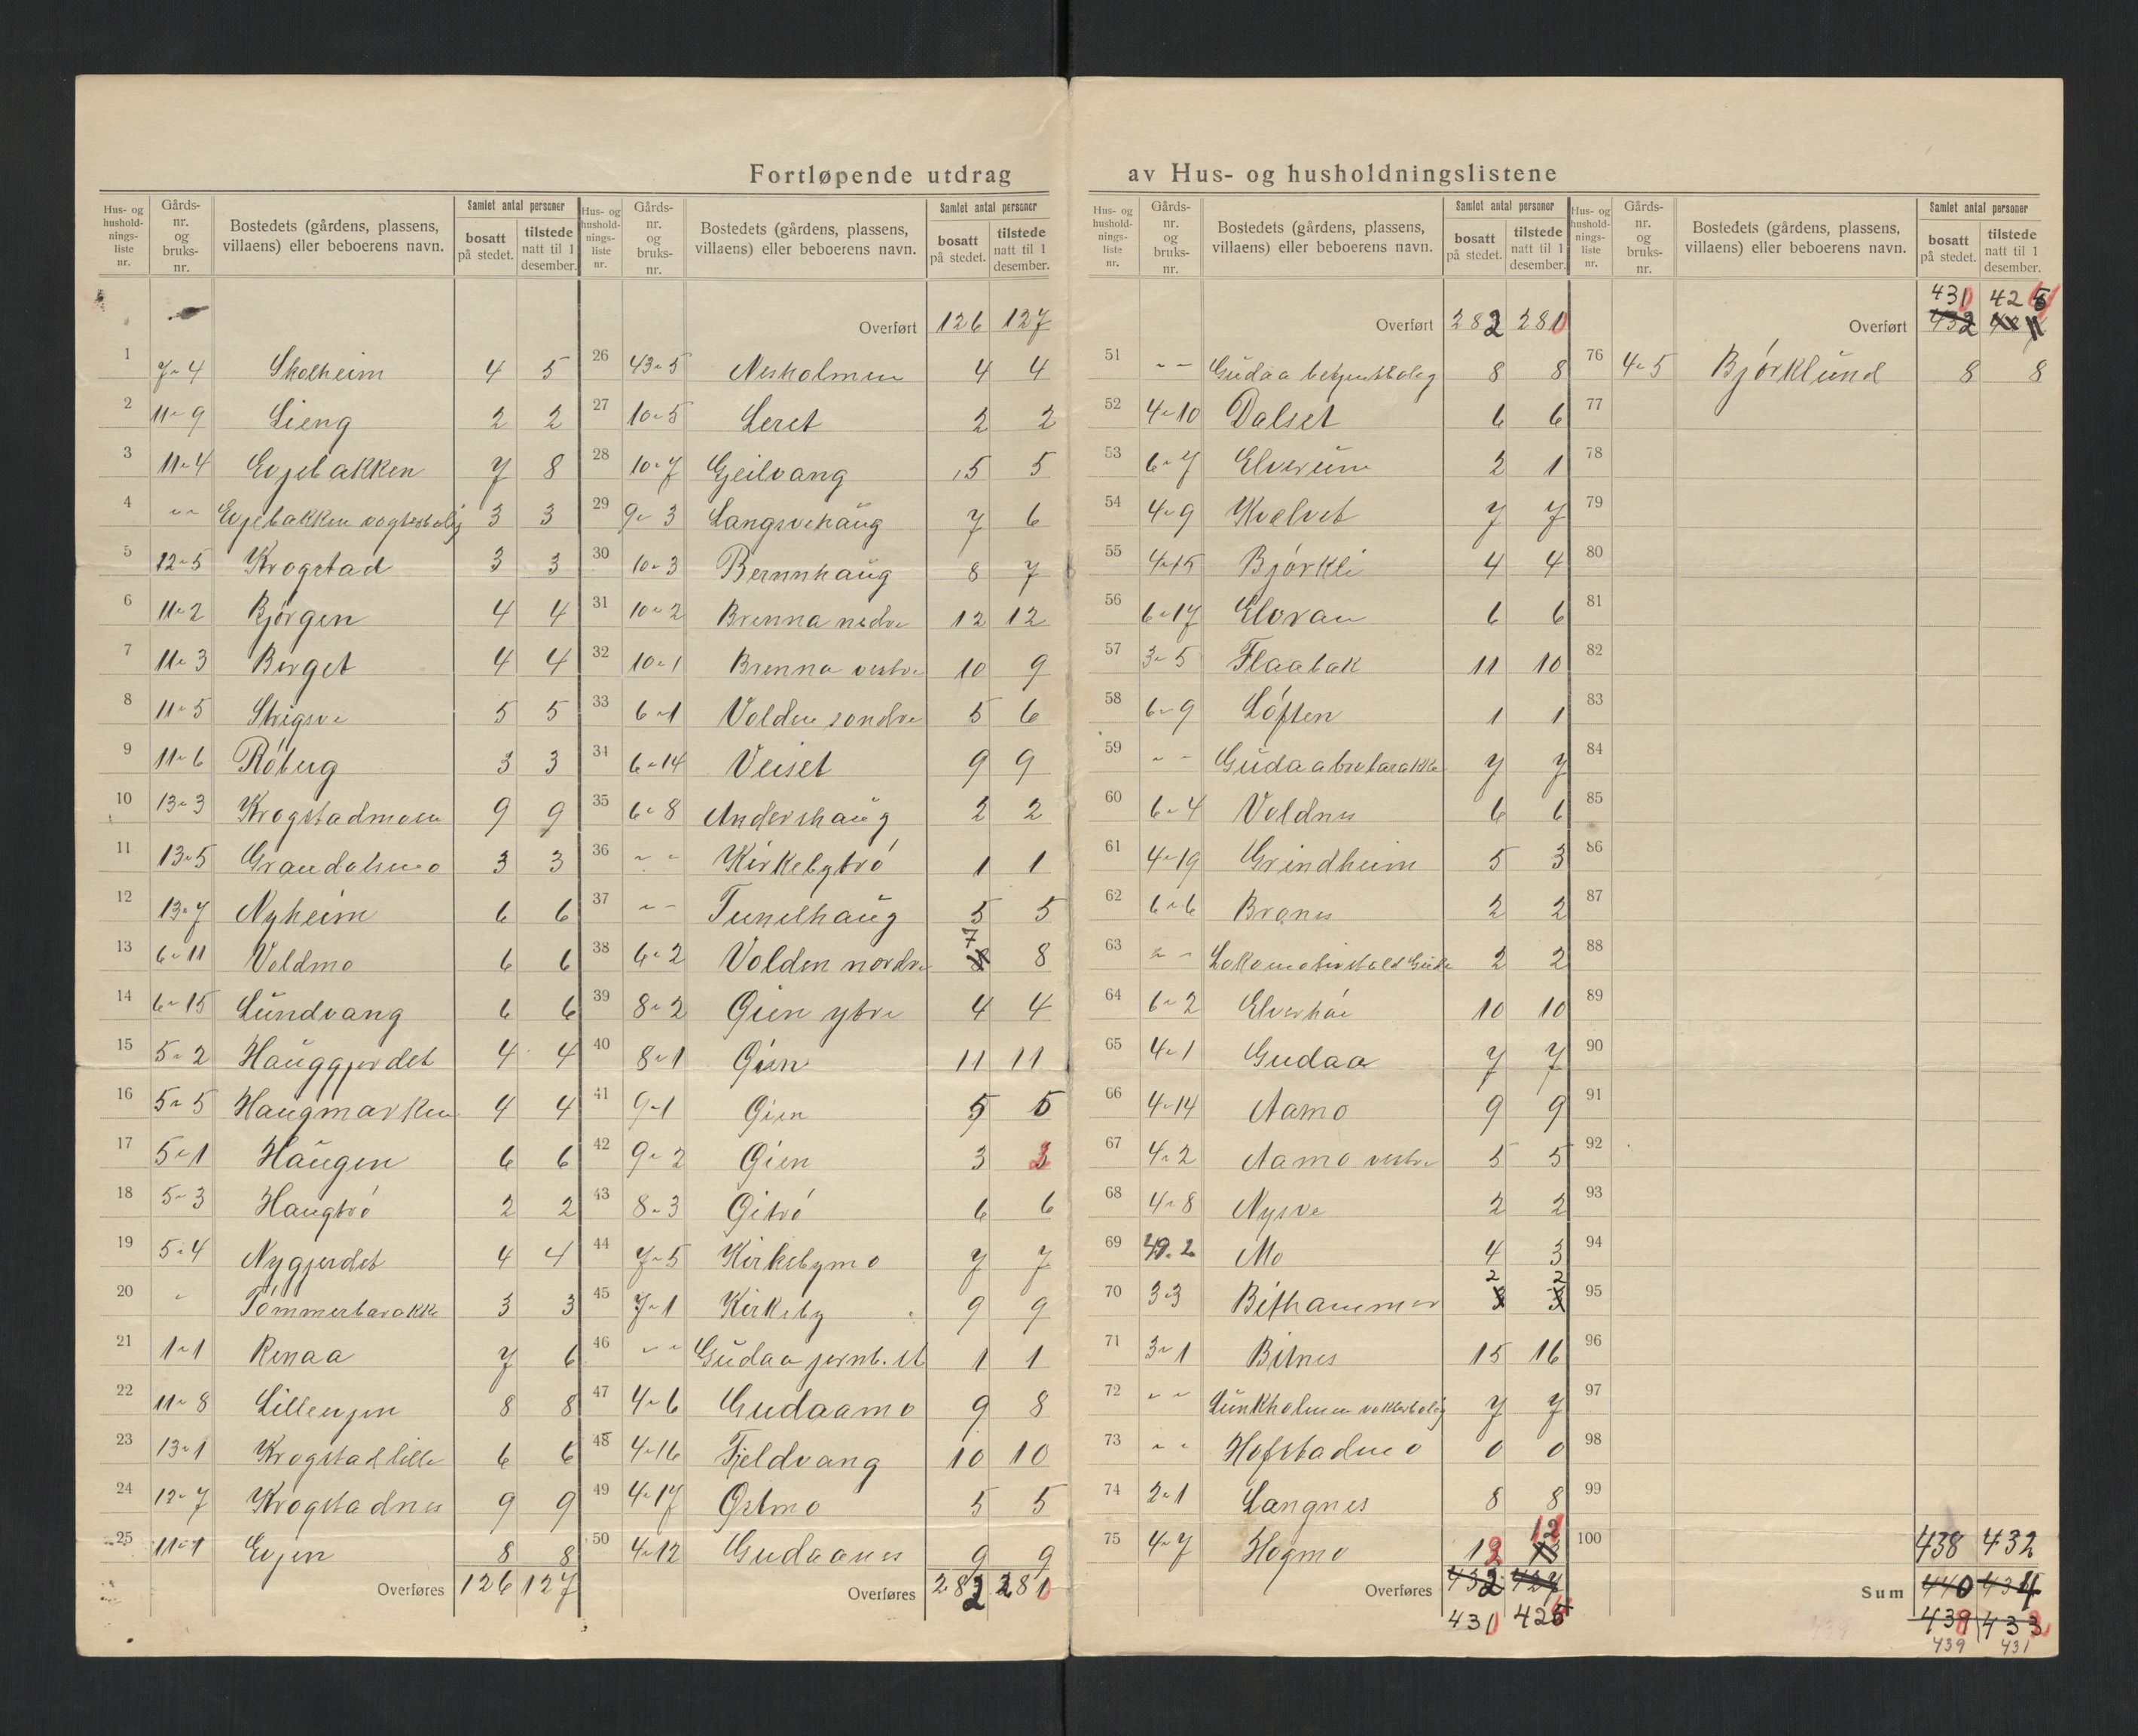 Fortløpende utdrag av Hus- og husholdningslistene
Hus- og hushold- nings- liste nr. Gårds- nr. og bruks- nr. Bostedets (gårdens, plassens, villaens) eller beboerens navn. Samlet antal personer bosatt på stedet. tilstede natt til 1 desember.
1 7-4 Skolheim 4 5
2 11-9 Lieng 2 2
3 11-4 Evjebakken 7 8
4 -"- Evjebakken vogterbolig 3 3
5 12-5 Krogstad 3 3
6 11-2 Bjørgen 4 4
7 11-3 Berget 4 4
8 11-5 Strigsve 5 5
9 11-6 Røberg 3 3
10 13-3 Krogstadmoen 9 9
11 13-5 Grandalsmo 3 3
12 13-7 Nyheim 6 6
13 6-11 Voldmo 6 6
14 6-15 Lundvang 6 6
15 5-2 Hauggjerdet 4 4
16 5-5 Haugmarken 4 4
17 5-1 Haugen 6 6
18 5-3 Haugtrø 2 2
19 5-4 Nygjerdet 4 4
20 " Tømmerbarakke 3 3
21 1-1 Renaa 7 6
22 11-8 Lilleevjen 8 8
23 13-1 Krogstad lille 6 6
24 12-7 Krogstadnes 9 9
25 11-1 Evjen 8 8
Overføres 126 127
Hus- og hushold- nings- liste nr. Gårds- nr. og bruks- nr. Bostedets (gårdens, plassens, villaens) eller beboerens navn. Samlet antal personer bosatt på stedet. tilstede natt til 1 desember.
Overført 126 127
26 43-5 Nesholmen 4 4
27 10-5 Leret 2 2
28 10-7 Gjeilvang 5 5
29 9-3 Langsvehaug 7 6
30 10-3 Bernnhaug 8 7
31 10-2 Brenna nedre 12 12
32 10-1 Brenna vestre 10 9
33 6-1 Volden søndre 5 6
34 6-14 Veiset 9 9
35 6-8 Andershaug 2 2
36 -"- Kirkebytrø 1 1
37 -"- Tunelhaug 5 5
38 6-2 Volden nordre 7 8 8
39 8-2 Gien ytre 4 4
40 8-1 Gien 11 11
41 9-1 Gien 5 5
42 9-2 Gien 3 3
43 8-3 Gitrø 6 6
44 7-5 Kirkebymo 7 7
45 7-1 Kirkeby 9 9
46 -"- Gudaa jernb. st 1 1
47 4-6 Gudaamo 9 8
48 4-16 Fjeldvang 10 10
49 4-17 Østmo 5 5
50 4-12 Gudaanes 9 9
Overføres 282 280
Hus- og hushold- nings- liste nr. Gårds- nr. og bruks- nr. Bostedets (gårdens, plassens, villaens) eller beboerens navn. Samlet antal personer bosatt på stedet. tilstede natt til 1 desember.
Overført 282 280
51 -"- Gudaa betjentbolig 8 8
52 4-10 Dalset 6 6
53 6-7 Elverum 2 1
54 4-9 Kvelvet 7 7
55 4-15 Bjørkli 4 4
56 6-17 Elvran 6 6
57 3-5 Flaabak 11 10
58 6-9 Løften 1 1
59 -"- Gudaabrubarakke 7 7
60 6-4 Voldnes 6 6
61 4-19 Grindheim 5 3
62 6-6 Branes 2 2
63 -"- Lokomotivstald Guda 2 2
64 6-2 Elverhøi 10 10
65 4-1 Gudaa 7 7
66 4-14 Aamo 9 9
67 4-2 Aamo vestre 5 5
68 4-8 Nysve 2 2
69 49-2 Mo 4 3
70 3-3 Bithammer 2 3 2 3
71 3-1 Bitnes 15 16
72 -"- Lunkholmen vokterbolig 7 7
73 -"- Hofstadmo 0 0
74 2-1 Langnes 8 8
75 4-7 Hogmo 12 12
Overføres 432 427
431 425
Hus- og hushold- nings- liste nr. Gårds- nr. og bruks- nr. Bostedets (gårdens, plassens, villaens) eller beboerens navn. Samlet antal personer bosatt på stedet. tilstede natt til 1 desember.
430 425
Overført 432
76 4-5 Bjørklund 8 8
77
78
79
80
81
82
83
84
85
86
87
88
89
90
91
92
93
94
95
96
97
98
99
100
438 432
Sum 440 434
439 433
439 431